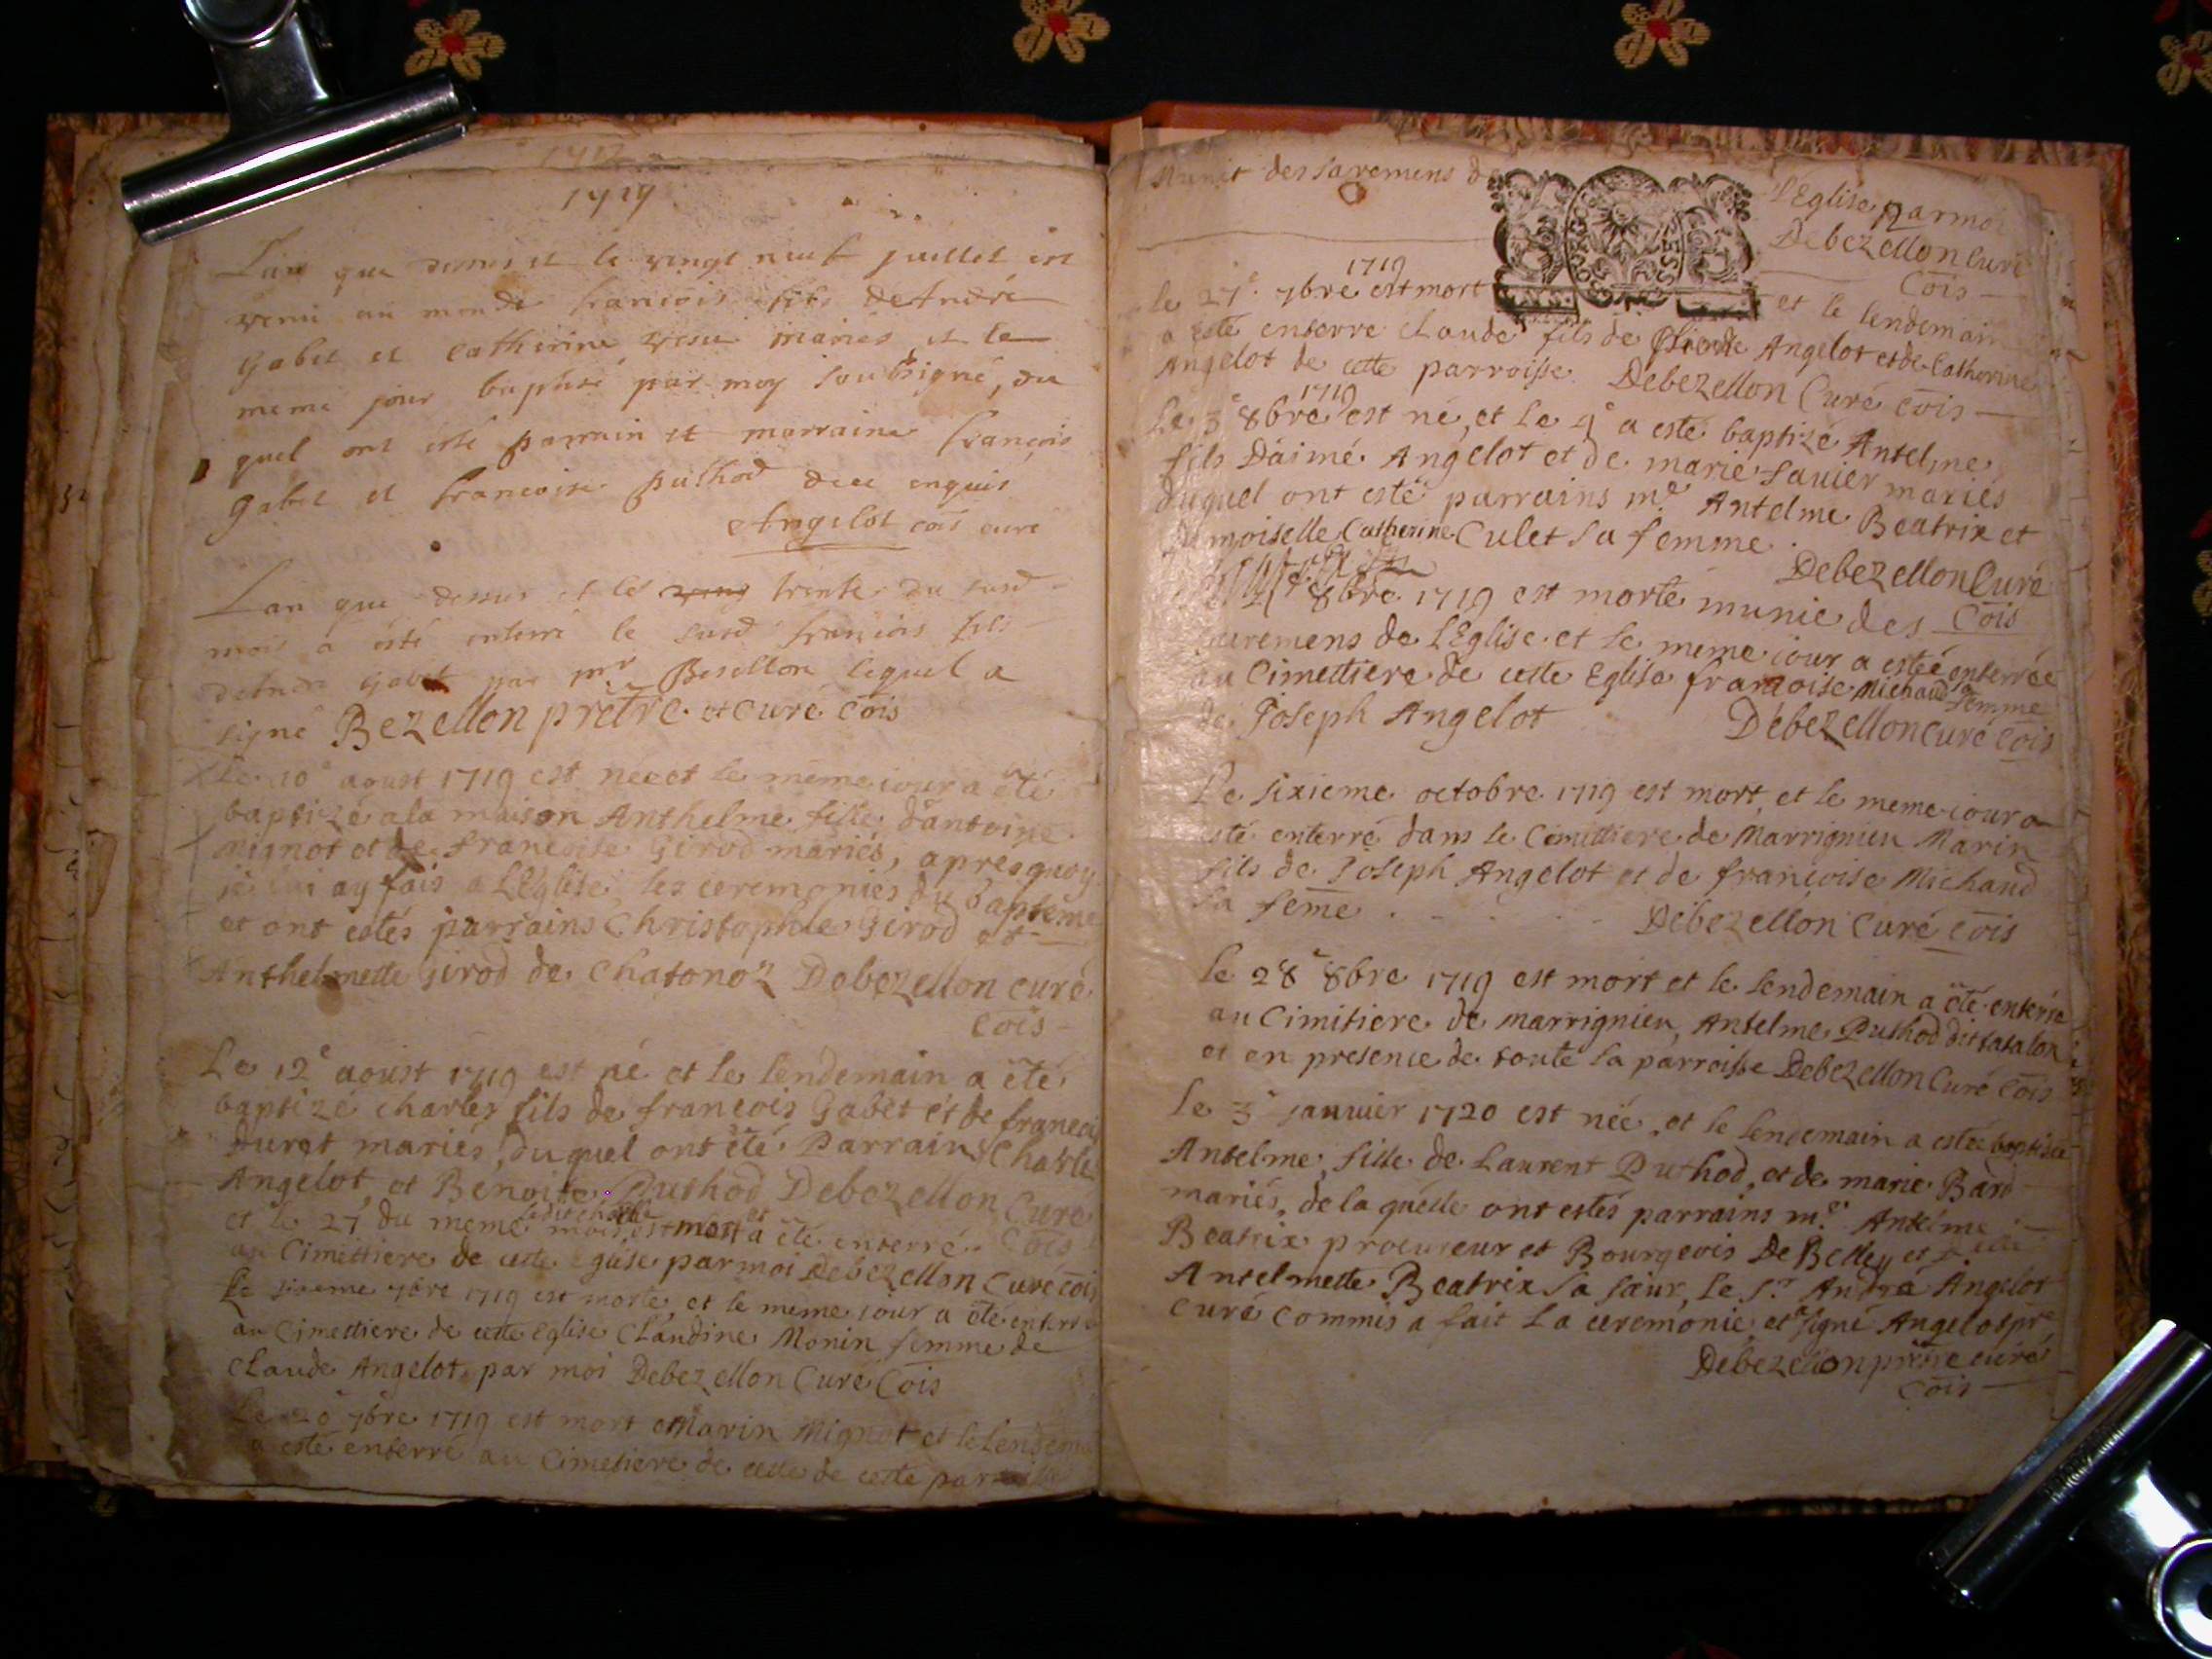 1719
Lan que dessus et le vingt neuf juillet est
venu au monde francois fils de André
Gabet et Catherine mariés et le
meme jour baptisé par moy soubsigné, du
quel ont esté parrain et marraine françois
Gabet et francoise puthod
Angelot cois curé
Lan que dessus et les trente du susd
mois a esté enterré le susd francois fils
dandré Gabet par mr Besellon lequel a
signé Bezellon prêtre et curé cois
Le 10e aoust 1719 est née et le meme iour a été
baptizé a la maison Anthelme fille dantoine
Mignot et de francoise Girod mariés, apres quoy
je lui ay fais a LEglise les ceremonies du baptême
et ont estés parrains Christophle Girod et
Anthelmette Girod de Chatonoz Debezellon curé
cois
Le 12e aoust 1719 est né et le lendemain a été
baptizé charles fils de francois Gabet et de francoi
Duret mariés, duquel ont été Parrains Charle
Angelot, et Benoite Puthod Debezellon Curé
et le 27 du meme mois ledit charle est mort et a été enterré cois
au Cimettiere de cette eglise par moi Debezellon Curé cois
Le sixeme 7bre 1719 est morte, et le même iour a été enterré
au Cimettiere de cette Eglise Claudine Monin femme de
Claude Angelot par moi Debezellon Curé Cois
Le 20 7bre 1719 est mort Marin Mignot et le lendemai
a esté enterré au Cimetiere de cette de cette parroisse
Munit des sacremens de l'Eglise par moi
Debezellon Curé
Cois
le 27e 7bre 1719 est mort et le lendemain
a esté enterré Claude fils de Angelot et de Catherine
Angelot de cette parroisse Debezellon Curé cois
Le 3e 8bre 1719 est né, et le 4e a esté baptizé Antelme
fils Daimé Angelot et de marie savier mariés
duquel ont esté parrains me Antelme Beatrix et
Catherine Culet sa femme.
Debezellon Curé
8bre 1719 est morte munie des Cois
sacremens de lEglise et le meme iour a esteé enterrée
au Cimettiere de cette Eglise francoise Michaud femme
de Joseph Angelot Debezellon curé cois
Le sixieme octobre 1719 est mort, et le meme iour a
esté enterré dans le Cimittiere de Marrignieu Marin
fils de Joseph Angelot et de françoise Michaud
sa feme Debezellon Curé cois
le 28e 8bre 1719 est mort et le lendemain a été enterré
au Cimitiere de Marrignieu, Antelme Puthod dit catalon
et en presence de toute la parroisse Debezellon Curé cois
Le 3e janvier 1720 est née, et le lendemain a esteé baptisée
Antelme fille de Laurent Puthod, et de marie Bard
mariés, de la quelle ont estés parrains me Antelme
Beatrix procureur et Bourgeois De Belley et
Antelmette Beatrix sa sœur, le Sr André Angelot
Curé Commis a fait La ceremonie, et a signé Angelot pre
Debezellon prêtre curé
cois